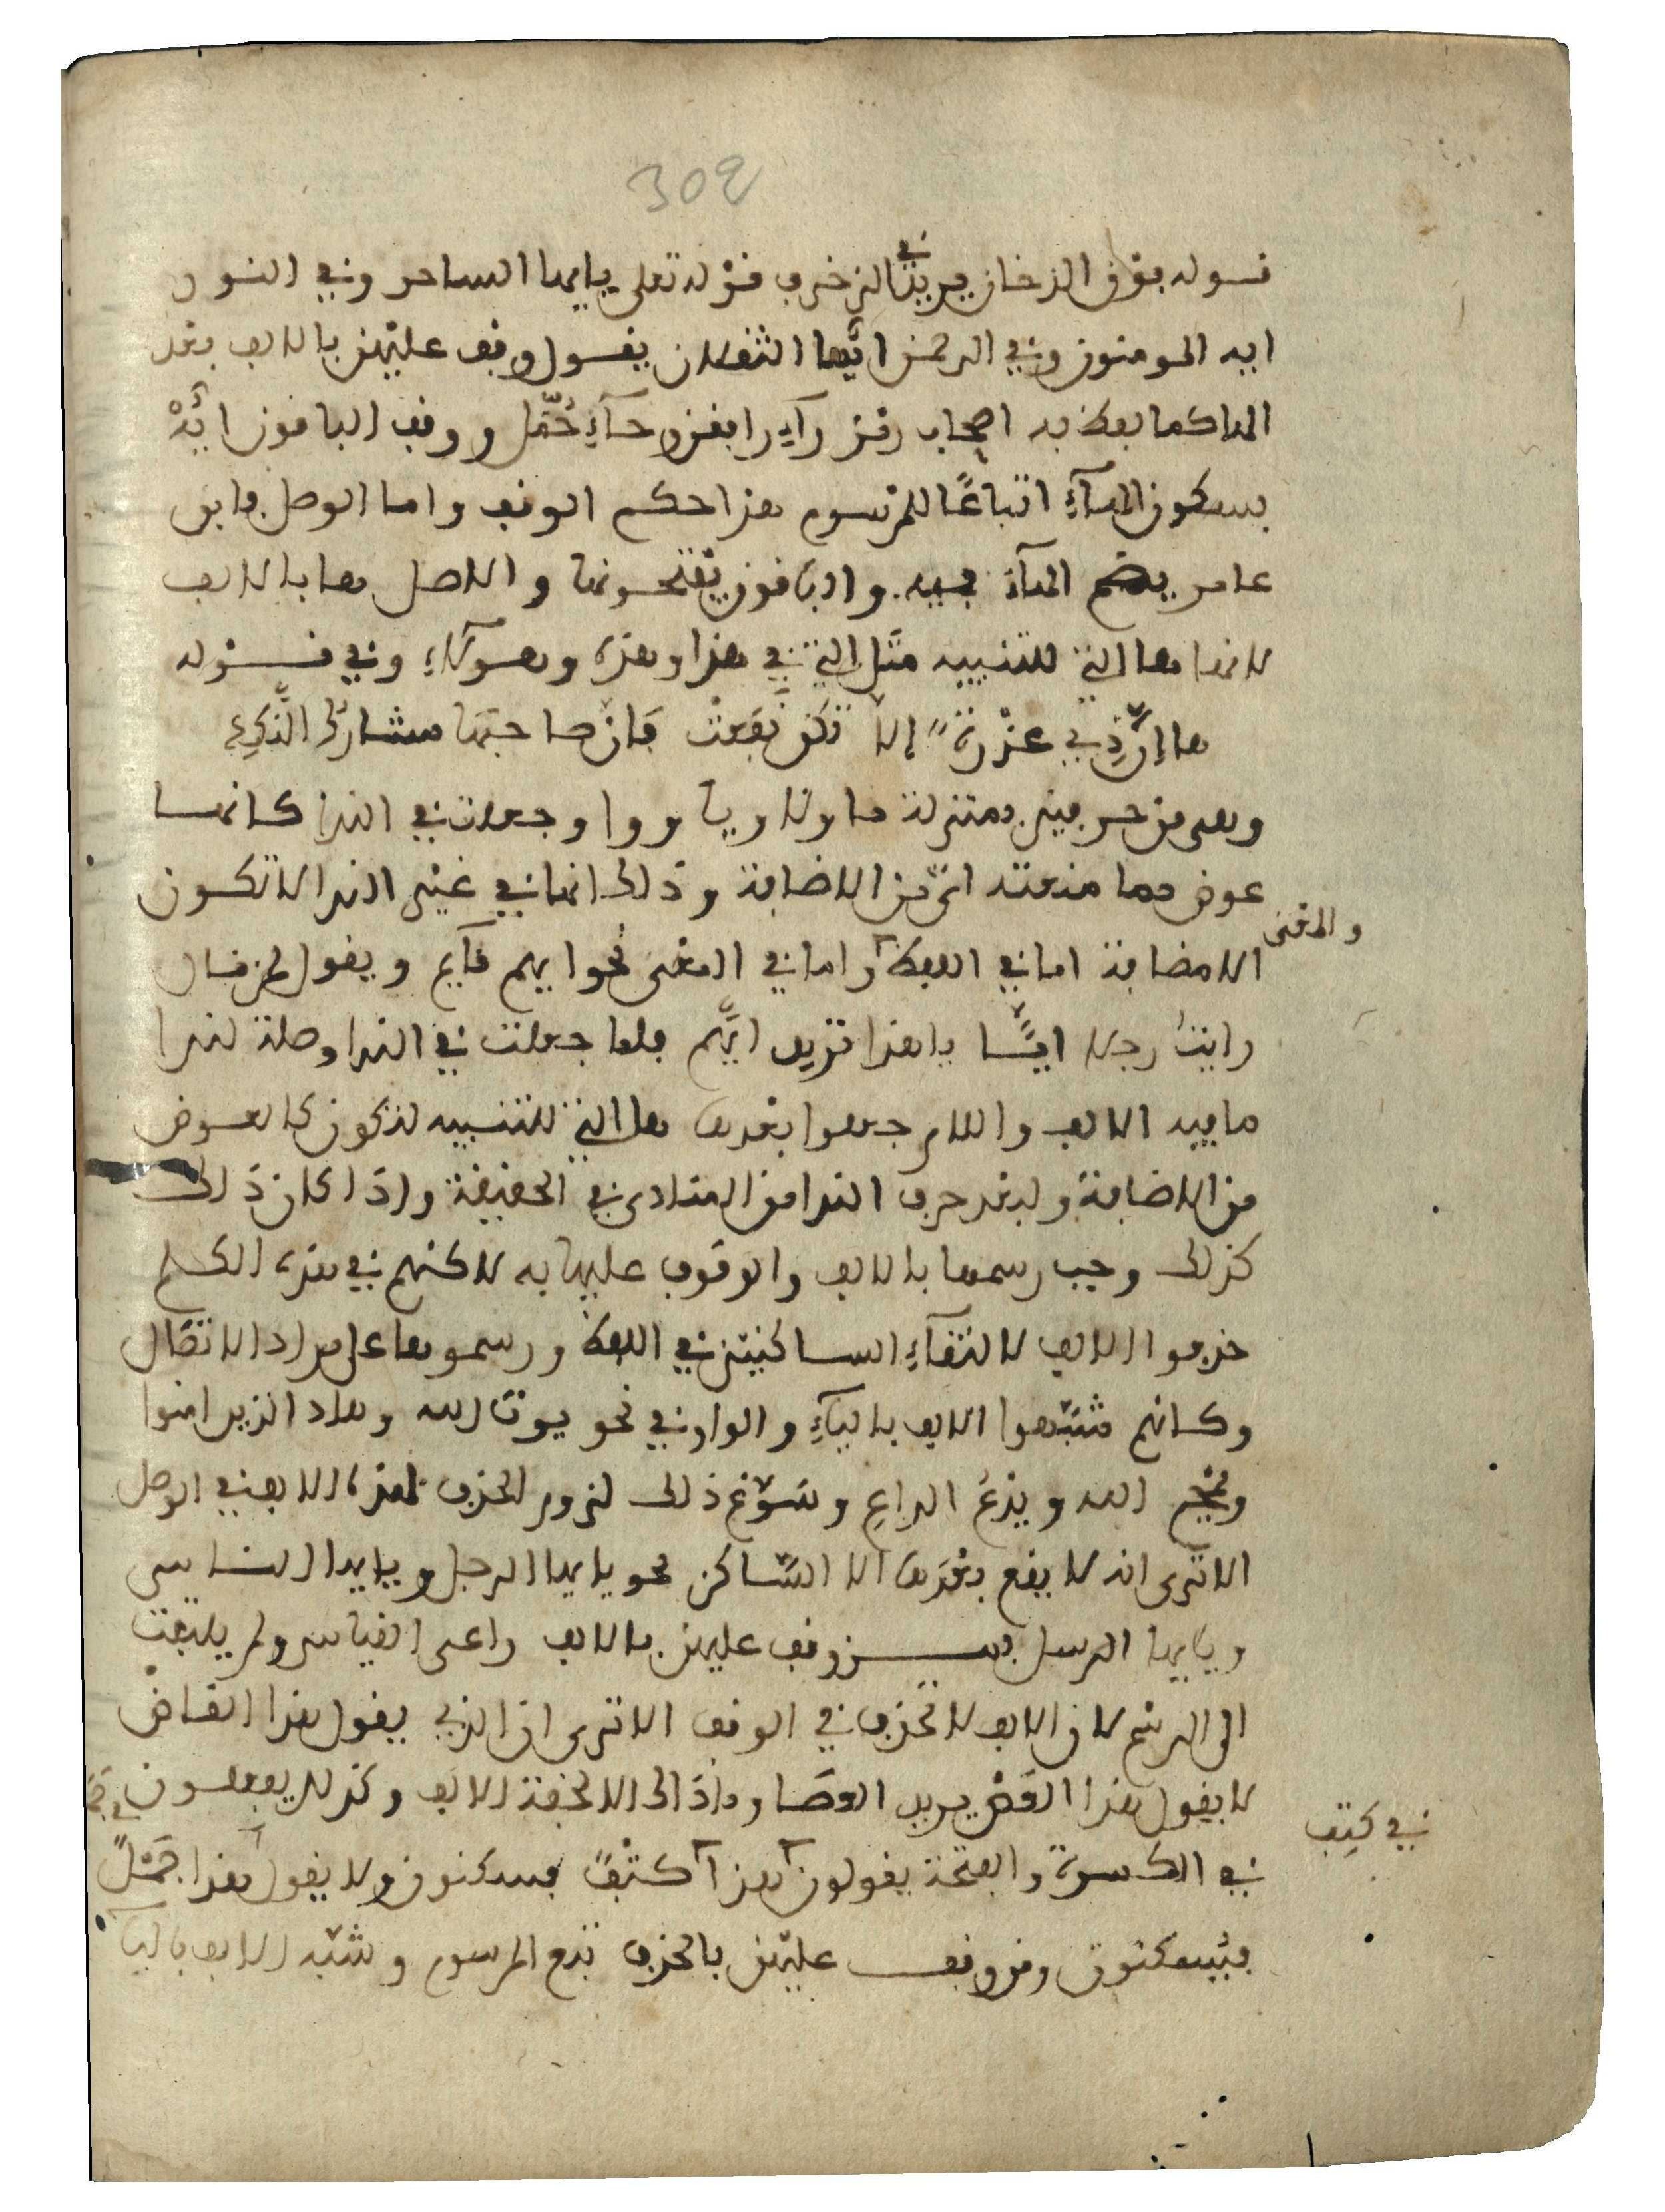 302
قوله فوق الدخان يريد في الزخرف قوله تعلى يايها الساحر وفي النور
ايه المومنون وفي الرحمن ايّها الثقلان يقول وقف عليهن بالالف بعد
الها كما لفظ به اصحاب رمز رآءِ رافقن وحآءِ حُمّلا ووقف الباقون ايّهْ
بسكون الهآءِ اتباعًا للمرسوم هذا حكم الوقف واما الوصل فابن
عامر يضم الهآء فيه والباقون يفتحونها والاصل ها بالالف
لانها ها التي للتنبيه مثل التي في هذا وهذه وهولآء وفي قوله
ها إنّ ذي عذرة إلا تكن نفعت فإنّ صاحبها مشارك النّكد
وهى من حرفين بمنزلة ما ولا ويا ووا وجعلت في الندا كانها
عوض مما منعته اىّ من الاضافة وذلك انها في غير الندا لا تكون
الا مضافة اما في اللفظ واما في المعنى نحو ايهم قآيم ويقول لمن قال
والمعنى
رايتُ رجلا ايًّا يا هذا تريد ايّهم فلما جعلت في الندا وصلة لندا
ما فيه الالف واللام جعلوا بعدها ها التي للتنبيه لتكون كالعوض
من الاضافة ولبعد حرف الندا من المنادى في الحقيقة واذا كان ذلك
كذلك وجب رسمها بالالف والوقوف عليها به لاكنهم في هذه الكلم
حذفوا الالف لالتقآءِ الساكنين في اللفظ ورسموها على مراد الاتصال
وكانهم شبّهوا الالف باليآءِ والواو في نحو يوت الله وهاد الذين امنوا
ويمح الله ويدعُ الداعِ وسَوّغ ذلك لزوم الحذف لهذه الالف في الوصل
الا ترى انه لا يقع بعدها الا السّاكن نحو يايها الرجل ويايها الناس
ويايها الرسل فمن وقف عليهن بالالف راعى القياس ولم يلتفت
الى الرسم لان الالف لا تحذف في الوقف الا ترى ان الذي يقول هذا القاضْ
لا يقول هذا العَصْ يريد العصا وماذاك الا لخفة الالف وكذلك يفعلون
في الكسرة والفتحة يقولون هذا كتْف فيسكنون ولا يقول هذا جَمْل
في كتِف
فيسكنون ومن وقف عليهن بالحذف تبع المرسوم وشبّه الالف باليآ